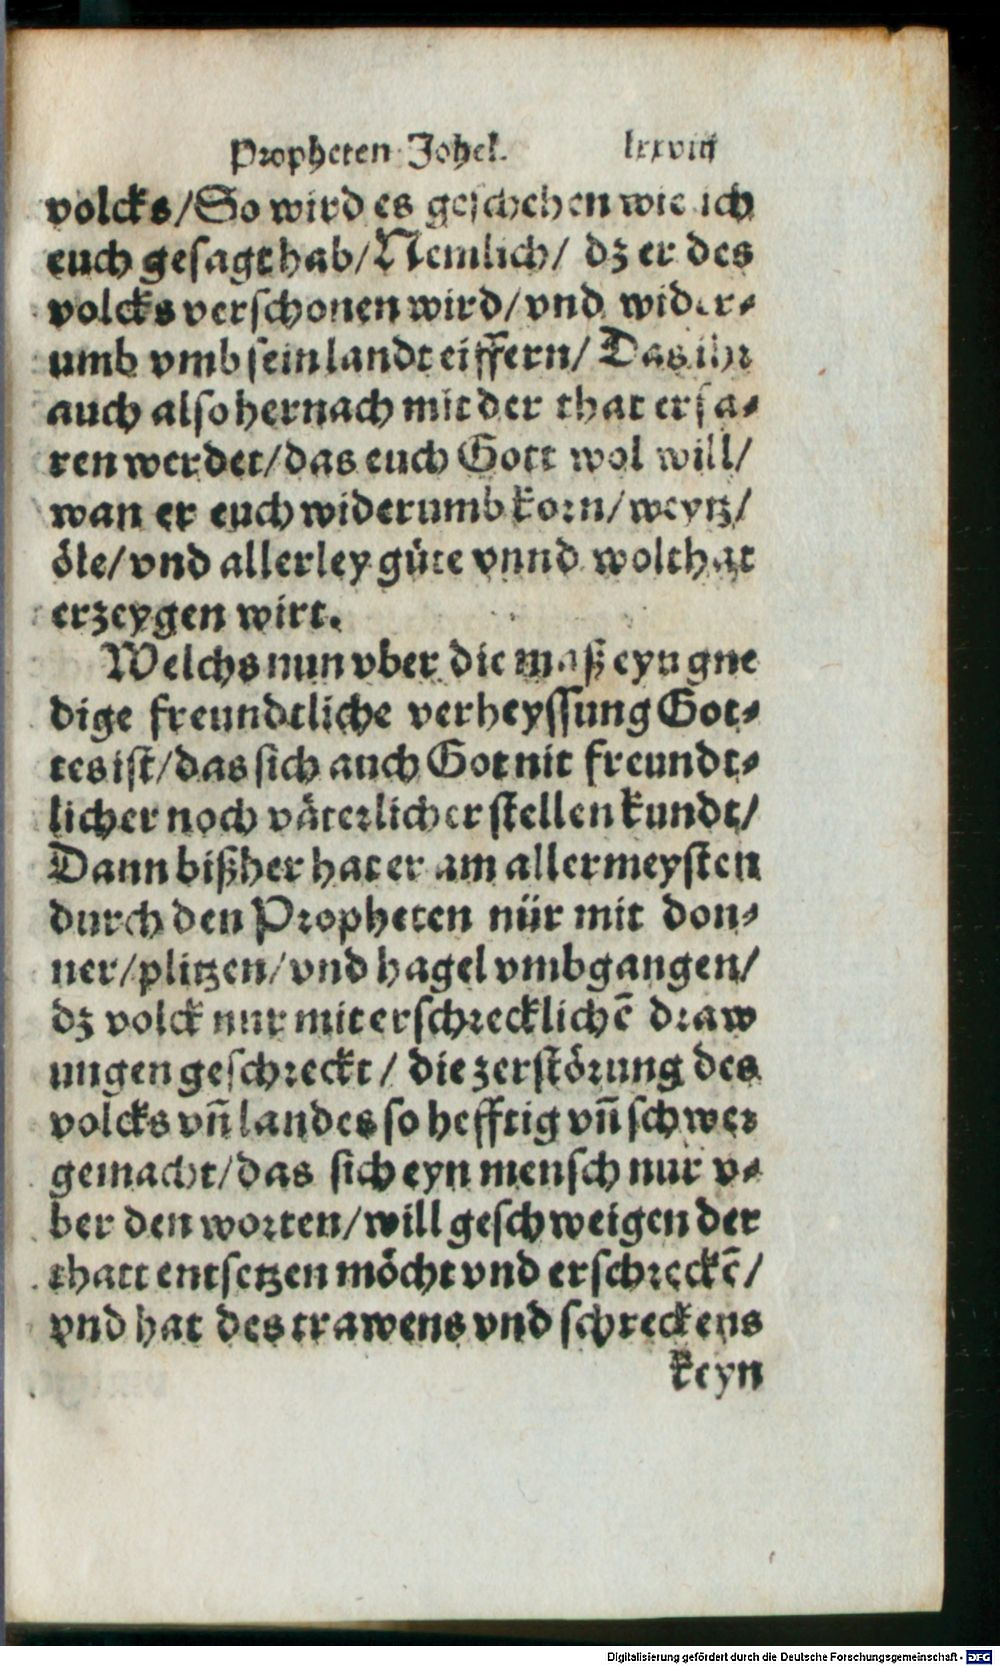 Propheten Johel. lxxviij
volcks/So wird es geschehen wie ich
euch gesagt hab/Nemlich/ dz er des
volcks verschonen wird/vnd wider⸗
umb vmb sein landt eiffern/ Das ihr
auch also hernach mit der that erfa⸗
ren werdet/das euch Gott wol will/
wan er euch widerumb korn/weytz/
öle/vnd allerley güte vnnd wolthat
erzeygen wirt.
Welchs nun vber die maß eyn gne
dige freundtliche verheyssung Got⸗
tes ist/das sich auch Got nit freundt⸗
licher noch väterlicher stellen kundt/
Dann bißher hat er am allermeysten
durch den Propheten nür mit don⸗
ner/plitzen/vnd hagel vmbgangen/
dz volck nur mit erschrecklichē draw
ungen geschreckt/ die zerstörung des
volcks vñ landes so hefftig vñ schwer
gemacht/das sich eyn mensch nur v⸗
ber den worten/will geschweigen der
thatt entsetzen möcht vnd erschreckē/
vnd hat des trawens vnd schreckens
keyn
Digitalisierung gefördert durch die Deutsche Forschungsgemeinschaft - DFG